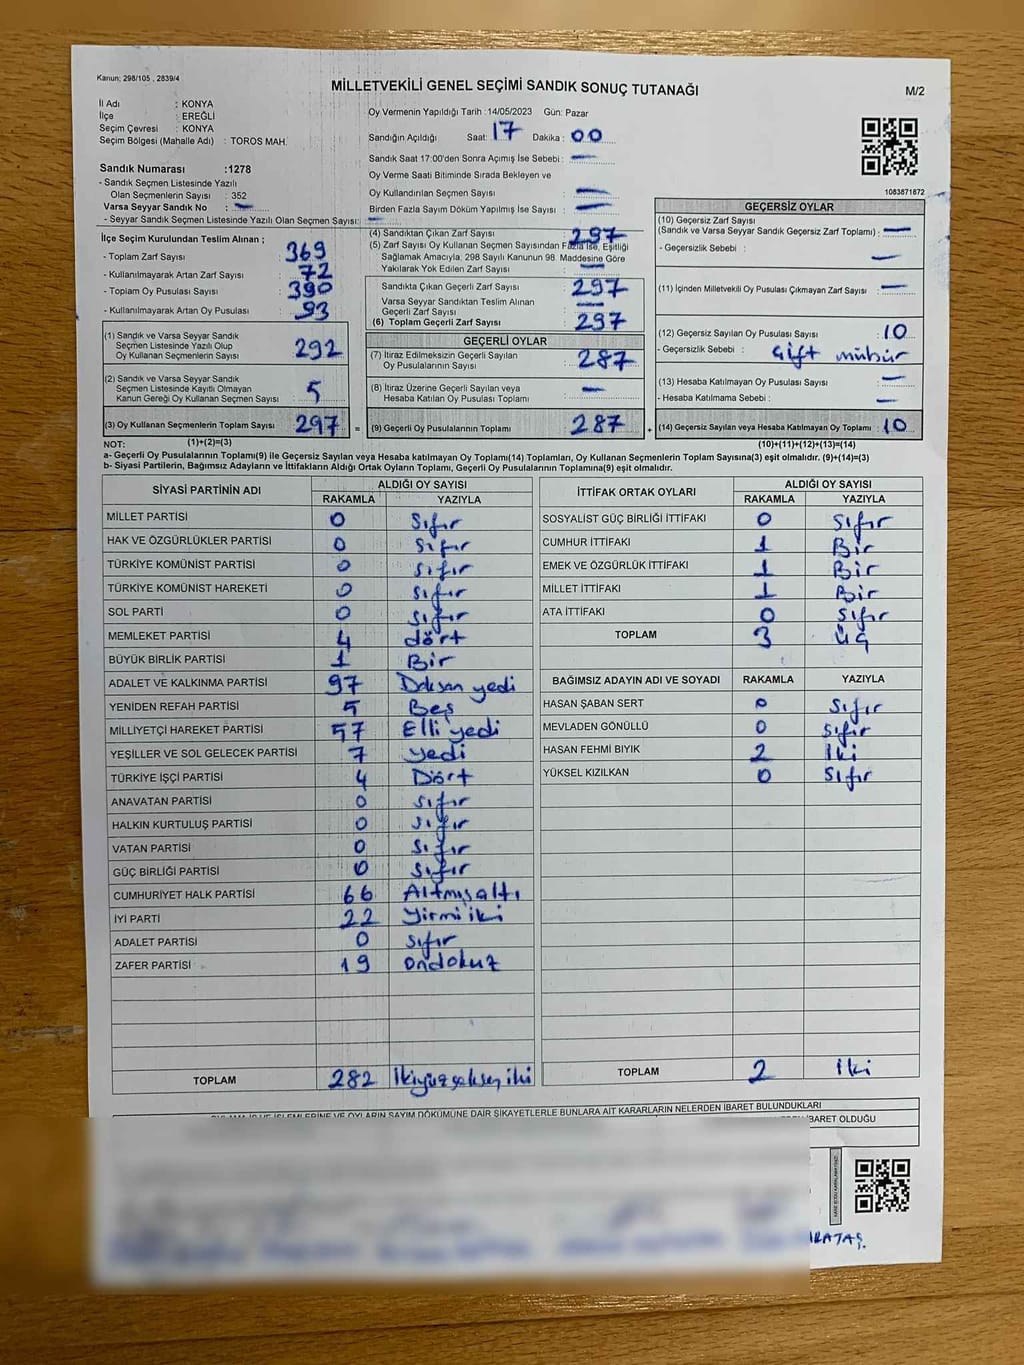 Kanun; 298/105 , 2839/4
MİLLETVEKİLİ GENEL SEÇİMİ SANDIK SONUÇ TUTANAĞI
M/2
İl Adı : KONYA
İlçe : EREĞLİ
Seçim Çevresi : KONYA
Seçim Bölgesi (Mahalle Adı) : TOROS MAH.
Sandık Numarası :1278
- Sandık Seçmen Listesinde Yazılı
Olan Seçmenlerin Sayısı : 352
Varsa Seyyar Sandık No : —
- Seyyar Sandık Seçmen Listesinde Yazılı Olan Seçmen Sayısı: —
Oy Vermenin Yapıldığı Tarih :14/05/2023 Gün: Pazar
Sandığın Açıldığı Saat: 17 Dakika : 00
Sandık Saat 17:00'den Sonra Açımış İse Sebebi : —
Oy Verme Saati Bitiminde Sırada Bekleyen ve
Oy Kullandırılan Seçmen Sayısı : —
Birden Fazla Sayım Döküm Yapılmış İse Sayısı : —
1083871872
İlçe Seçim Kurulundan Teslim Alınan ;
- Toplam Zarf Sayısı : 369
- Kullanılmayarak Artan Zarf Sayısı : 72
- Toplam Oy Pusulası Sayısı : 390
- Kullanılmayarak Artan Oy Pusulası : 93
(1) Sandık ve Varsa Seyyar Sandık
Seçmen Listesinde Yazılı Olup
Oy Kullanan Seçmenlerin Sayısı : 292
(2) Sandık ve Varsa Seyyar Sandık
Seçmen Listesinde Kayıtlı Olmayan
Kanun Gereği Oy Kullanan Seçmen Sayısı : 5
(3) Oy Kullanan Seçmenlerin Toplam Sayısı 297 =
(4) Sandıktan Çıkan Zarf Sayısı : 297
(5) Zarf Sayısı Oy Kullanan Seçmen Sayısından Fazla İse, Eşitliği
Sağlamak Amacıyla, 298 Sayılı Kanunun 98. Maddesine Göre
Yakılarak Yok Edilen Zarf Sayısı : —
Sandıkta Çıkan Geçerli Zarf Sayısı : 297
Varsa Seyyar Sandıktan Teslim Alınan
Geçerli Zarf Sayısı : —
(6) Toplam Geçerli Zarf Sayısı : 297
GEÇERLİ OYLAR
(7) İtiraz Edilmeksizin Geçerli Sayılan
Oy Pusulalarının Sayısı : 287
(8) İtiraz Üzerine Geçerli Sayılan veya
Hesaba Katılan Oy Pusulası Toplamı : —
(9) Geçerli Oy Pusulalarının Toplamı : 287 +
GEÇERSİZ OYLAR
(10) Geçersiz Zarf Sayısı
(Sandık ve Varsa Seyyar Sandık Geçersiz Zarf Toplamı) : —
- Geçersizlik Sebebi : —
(11) İçinden Milletvekili Oy Pusulası Çıkmayan Zarf Sayısı : —
(12) Geçersiz Sayılan Oy Pusulası Sayısı : 10
- Geçersizlik Sebebi : Çift mühür
(13) Hesaba Katılmayan Oy Pusulası Sayısı : —
- Hesaba Katılmama Sebebi : —
(14) Geçersiz Sayılan veya Hesaba Katılmayan Oy Toplamı : 10
NOT: (1)+(2)=(3) (10)+(11)+(12)+(13)=(14)
a- Geçerli Oy Pusulalarının Toplamı(9) ile Geçersiz Sayılan veya Hesaba katılmayan Oy Toplamı(14) Toplamları, Oy Kullanan Seçmenlerin Toplam Sayısına(3) eşit olmalıdır. (9)+(14)=(3)
b- Siyasi Partilerin, Bağımsız Adayların ve İttifakların Aldığı Ortak Oyların Toplamı, Geçerli Oy Pusulalarının Toplamına(9) eşit olmalıdır.
SİYASİ PARTİNİN ADI ALDIĞI OY SAYISI
RAKAMLA YAZIYLA
MİLLET PARTİSİ 0 Sıfır
HAK VE ÖZGÜRLÜKLER PARTİSİ 0 Sıfır
TÜRKİYE KOMÜNİST PARTİSİ 0 Sıfır
TÜRKİYE KOMÜNİST HAREKETİ 0 Sıfır
SOL PARTİ 0 Sıfır
MEMLEKET PARTİSİ 4 dört
BÜYÜK BİRLİK PARTİSİ 1 Bir
ADALET VE KALKINMA PARTİSİ 97 Doksan yedi
YENİDEN REFAH PARTİSİ 5 Beş
MİLLİYETÇİ HAREKET PARTİSİ 57 Elli yedi
YEŞİLLER VE SOL GELECEK PARTİSİ 7 yedi
TÜRKİYE İŞÇİ PARTİSİ 4 Dört
ANAVATAN PARTİSİ 0 Sıfır
HALKIN KURTULUŞ PARTİSİ 0 Sıfır
VATAN PARTİSİ 0 Sıfır
GÜÇ BİRLİĞİ PARTİSİ 0 Sıfır
CUMHURİYET HALK PARTİSİ 66 Altmışaltı
İYİ PARTİ 22 Yirmi iki
ADALET PARTİSİ 0 Sıfır
ZAFER PARTİSİ 19 ondokuz
TOPLAM 282 İkiyüz seksen iki
İTTİFAK ORTAK OYLARI ALDIĞI OY SAYISI
RAKAMLA YAZIYLA
SOSYALİST GÜÇ BİRLİĞİ İTTİFAKI 0 Sıfır
CUMHUR İTTİFAKI 1 Bir
EMEK VE ÖZGÜRLÜK İTTİFAKI 1 Bir
MİLLET İTTİFAKI 1 Bir
ATA İTTİFAKI 0 Sıfır
TOPLAM 3 Üç
BAĞIMSIZ ADAYIN ADI VE SOYADI RAKAMLA YAZIYLA
HASAN ŞABAN SERT 0 Sıfır
MEVLADEN GÖNÜLLÜ 0 Sıfır
HASAN FEHMİ BIYIK 2 İki
YÜKSEL KIZILKAN 0 Sıfır
TOPLAM 2 İki
OYLAMA İŞ VE İŞLEMLERİNE VE OYLARIN SAYIM DÖKÜMÜNE DAİR ŞİKAYETLERLE BUNLARA AİT KARARLARIN NELERDEN İBARET BULUNDUKLARI
İBARET OLDUĞU